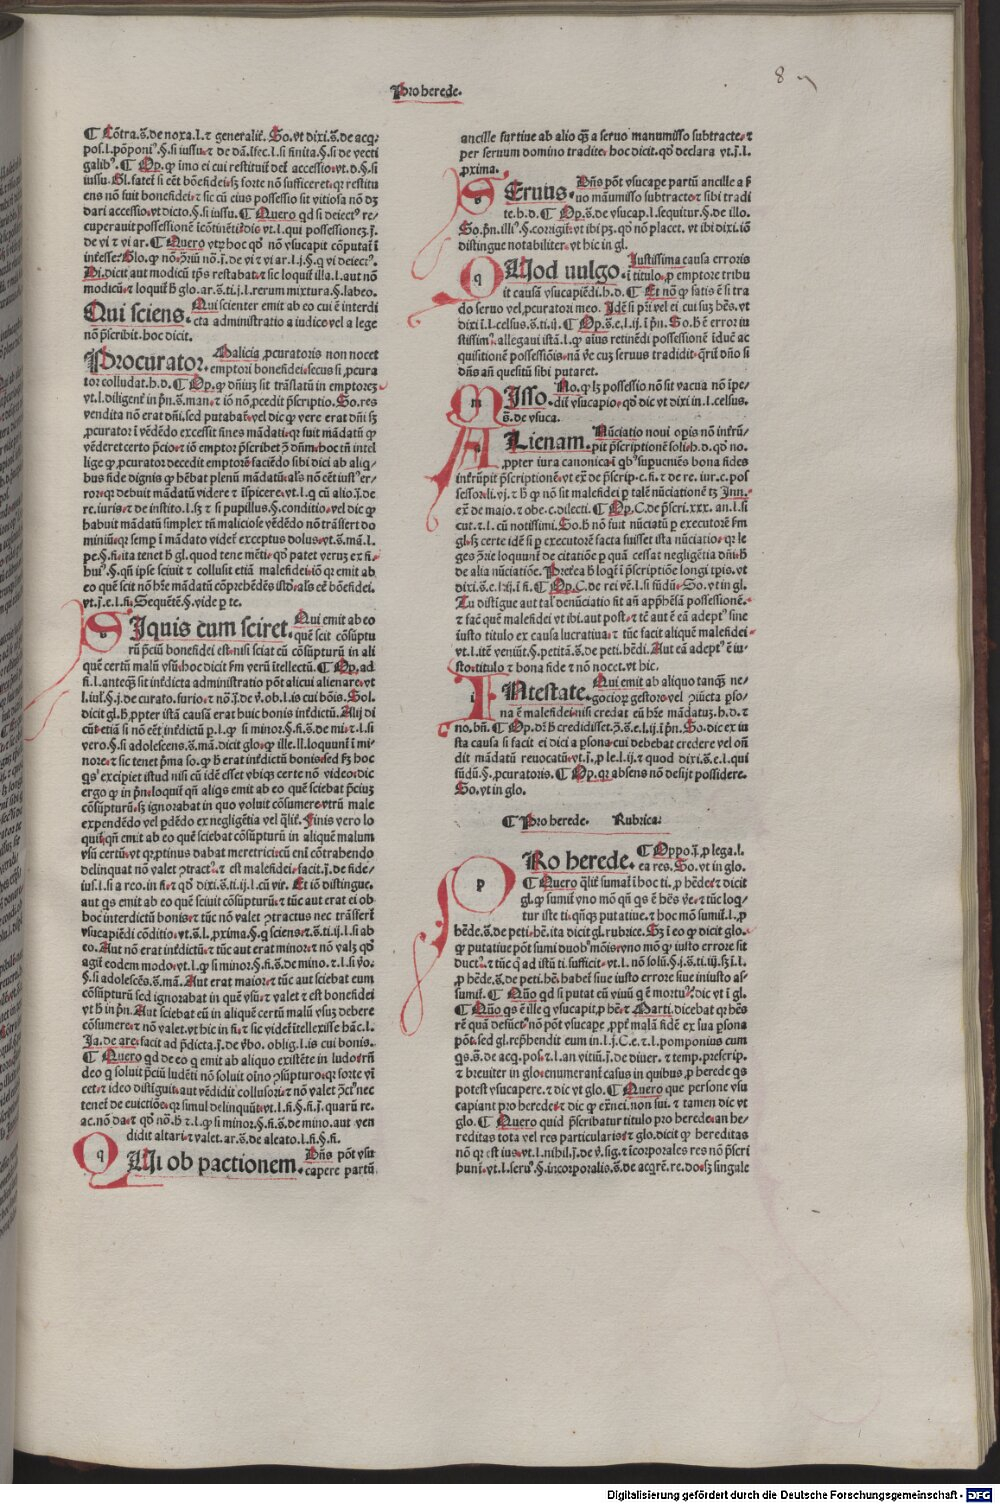 Pro herede.
8
¶ Cõtra.s̃.de noxa.l.⁊ generalit̃. So.vt dixi.s̃.de acq̃r
pos.l.põponiꝰ.§.si iussu.⁊ de dã.Isec.l.si finita.§.si de vecti
galibꝰ. ¶ Op. ꝙ imo ei cui restituit det̃ accessio.vt.d.§.si
iussu. Gl. fatet̃ si eẽt bõefidei.sꝫ forte nõ sufficeret.qꝛ restitu
ens nõ fuit bonefidei.⁊ sic cũ eius possessio sit vitiosa nõ dꝫ
dari accessio.vt dicto.§.si iussu. ¶ Quero qd si deiectꝰ re/
cuperauit possessionẽ
de vi ⁊ vi ar. ¶ Quero vtꝝ hoc qd̃ nõ vsucapit cõputat̃ ĩ
Di.dicit aut modicũ tp̃s restabat.⁊ sic loquit̃ illa.l.aut nõ
modicũ.⁊ loquit̃ h̃ glo.ar.s̃.ti.j.l.rerum mixtura.§.labeo.
Qui sciens. Qui scienter emit ab eo cui ẽ interdi
cta administratio a iudice vel a lege
nõ p̃scribit.hoc dicit.
Procurator. Malicia ꝓcuratoris non nocet
emptori bonefidei.secus si ꝓcura
tor colludat.h.d. ¶ Op.ꝙ dñiuꝫ sit trãslatũ in emptoreꝫ
vt.l.diligent̃ in p̃n.s̃.man.⁊ iõ nõ ꝓcedit p̃scriptio. So.res
vendita nõ erat dñi.sed putabat̃.vel dic ꝙ vere erat dñi sꝫ
ꝓcurator ĩ vẽdẽdo excessit fines mãdati.qꝛ fuit mãdatũ ꝙ
vẽderet certo p̃cio.⁊ iõ emptor p̃scribet ꝯ̃ dñm.hoc tñ intel
lige ꝙ ꝓcurator decedit emptorẽ faciẽdo sibi dici ab aliq̃/
bus fide dignis ꝙ hẽbat plenũ mãdatũ.als̃ nõ eẽt iustꝰ er/
ror.qꝛ debuit mãdatũ videre ⁊ ĩspicere.vt.l.q cũ alio.j̃.de
re.iuris.⁊ de instito.l.sꝫ ⁊ si pupillus.§.conditio.vel dic ꝙ
habuit mãdatũ simplex tñ maliciose vẽdẽdo nõ trãsfert do
miniũ.qꝛ semꝑ ĩ mãdato videt̃ exceptus dolus.vt.s̃.mã.l.
eo quẽ scit nõ h̃re mãdatũ
vt.j̃.e.l.fi. Sequẽtẽ.§.vide ꝑ te.
SIquis cum sciret. Qui emit ab eo
quẽ scit cõsũptu
rũ p̃ciũ bonefidei est.nisi sciat eũ cõsũpturũ in ali
quẽ certũ malũ vsũ.hoc dicit s̃m verũ ĩtellectũ. ¶ Op. ad
fi.l.anteqꝫ̃ sit int̃dicta administratio põt alicui alienare.vt
l.iul̃.§.j.de curato.furio.⁊ nõ.j̃.de v̾.ob.l.is cui bõis. Sol.
dicit gl.h̃.ꝓpter istã causã erat huic bonis int̃dictũ. Alij di
cũt etiã si nõ eẽt int̃dictũ ꝑ.l.ꝙ si minor.§.fi.s̃.de mi.⁊.l.si
vero.§.si adolescens.s̃.mã.dicit glo.ꝙ ille.ll.loquunt̃ ĩ mi/
nore.⁊ sic tenet p̃ma so.ꝙ h̃ erat int̃dictũ bonis.sed sꝫ hoc
qs̃ excipiet istud nisi cũ idẽ esset vbiqꝫ certe nõ video.dic
ergo ꝙ in p̃n.loquit̃ qñ aliqs emit ab eo quẽ sciebat p̃ciuꝫ
cõsũpturũ.sꝫ ignorabat in quo voluit cõsumere.vtrũ male
expendẽdo vel ꝑdẽdo ex negligẽtia vel q̃lit̃. Finis vero lo
quit̃ qñ emit ab eo quẽ sciebat cõsũpturũ in aliquẽ malum
vsũ certũ.vt qꝛ ꝓtinus dabat meretrici.cũ em̃ cõtrahendo
delinquat nõ valet ꝯtractꝰ.⁊ est malefidei.facit.j̃.de fide/
ius.l.si a reo.in fi.⁊ qd̃ dixi.s̃.ti.ij.l.cũ vir. Et iõ distingue.
aut qs emit ab eo quẽ sciuit cõsũpturũ.⁊ tũc aut erat ei ob
hoc interdictũ bonis.⁊ tũc nõ valet ꝯtractus nec trãsfert̃
vsucapiẽdi cõditio.vt.s̃.l.ꝓxima.§.q sciens.⁊.s̃.ti.ij.l.si ab
eo. Aut nõ erat int̃dictũ.⁊ tũc aut erat minor.⁊ nõ valꝫ qd̃
agit̃ eodem modo.vt.l.ꝙ si minor.§.fi.s̃.de mino.⁊.l.si v̾o.
§.si adolescẽs.s̃.mã. Aut erat maior.⁊ tũc aut sciebat eum
cõsũpturũ sed ignorabat in quẽ vsũ.⁊ valet ⁊ est bonefidei
vt h̃ in p̃n. Aut sciebat eũ in aliquẽ certũ malũ vsuꝫ debere
cõsũmere.⁊ nõ valet.vt hic in fi.⁊ sic videt̃ ĩtellexisse hãc.l.
Ja.de are.facit ad p̃dicta.j̃.de v̾bo.oblig.l.is cui bonis.
¶ Quero qd de eo q emit ab aliquo existẽte in ludo.r̃ñ
deo q soluit p̃ciũ ludẽti nõ soluit oĩno ꝯsũpturo.qꝛ forte vĩ
cet.⁊ ideo distiguit.aut vẽdidit collusori.⁊ nõ valet ꝯ̃ctꝰ nec
tenet̃ de euictiõe.qꝛ simul delinqũũt.vt.l.fi.§.fi.j̃.quarũ re.
ac.nõ da.⁊ qd̃ nõ.h̃.⁊.l.ꝙ si minor.§.fi.s̃.de mino.aut ven
didit altari.⁊ valet.ar.s̃.de aleato.l.fi.§.fi.
QUi ob pactionem. Dñs põt vsu
capere partũ
ancille furtiue ab alio qꝫ̃ a seruo manumisso subtracte.⁊
per seruum domino tradite.hoc dicit.qd̃ declara vt.j̃.l.
ꝓxima.
SEruus. Dñs põt vsucape partũ ancille a s̃
uo manumisso subtracte.⁊ sibi tradi
te.h.d. ¶ Op.s̃.de vsucap.l.sequitur.§.de illo.
So.p̃n.illiꝰ.§.corrigit̃.vt ibi pꝫ.qd̃ nõ placet. vt ibi dixi.iõ
distingue notabiliter.vt hic in gl.
QUod uulgo. Justissima causa erroris
ĩ titulo.ꝓ emptore tribu
it causã vsucapiẽdi.h.d. ¶ Et nõ ꝙ satis ẽ si tra
do seruo vel ꝓcuratori meo. Idẽ si p̃ri vel ei cui suꝫ hẽs.vt
dixi ĩ.l.celsus.s̃.ti.ij. ¶ Op.s̃.e.l.ij.ĩ p̃n. So.h̃ẽ error iu
stissimꝰ.allegaui istã.l.ꝙ aĩus retinẽdi possessionẽ ĩduẽ ac
quisitionẽ possessiõis.nã v̾e cuꝫ seruus tradidit.q̃ritũ dño si
dñs añ questũ sibi putaret.
MIsso. No.ꝙ lꝫ possessio nõ sit vacua nõ ĩpe/
dit̃ vsucapio.qd̃ dic vt dixi in.l.celsus.
s̃.de vsuca.
ALienam. Nũciatio noui opis nõ int̃rũ/
pit p̃scriptionẽ soli.h.d.qd̃ no.
ꝓpter iura canonica.ĩ qbꝰ supuenies bona fides
int̃rũpit p̃scriptionẽ.vt ex̃ de p̃scrip.c.fi.⁊ de re.iur.c.pos
sessor.li.vj.⁊ h̃ ꝙ nõ sit malefidei ꝑ talẽ nũciationẽ tꝫ Inn.
ex̃ de maio.⁊ obe.c.dilecti. ¶ Op.C.de p̃scri.xxx.an.l.si
cut.⁊.l.cũ notissimi. So.h̃ nõ fuit nũciatũ ꝑ executorẽ s̃m
gl.sꝫ certe idẽ si ꝑ executorẽ facta fuisset ista nũciatio.qꝛ le
ges ꝯ̃rie loquunt̃ de citatiõe ꝑ quã cessat negligẽtia dñi.h̃
de alia nũciatiõe. Preterea h̃ loqt̃ ĩ p̃scriptiõe longi tp̃is.vt
¶ Op.C.de rei vẽ.l.si fũdũ. So.vt in gl.
Tu distĩgue aut tal̃ denũciatio fit añ app̃hẽsã possessionẽ.
⁊ facẽ quẽ malefidei vt ibi.aut post.⁊ tẽ aut ẽ eã adeptꝰ sine
iusto titulo ex causa lucratiua.⁊ tũc facit aliquẽ malefidei
vt.l.itẽ veniũt.§.petitã.s̃.de peti.hẽdi. Aut eã adeptꝰ ẽ iu/
sto.titulo ⁊ bona fide ⁊ nõ nocet.vt hic.
INtestate. Qui emit ab aliquo tanqꝫ̃ ne/
gocioꝝ gestore.vel ꝯiũcta ꝑso/
na ẽ malefidei.nisi credat eũ h̃re mãdatuꝫ.h.d.⁊
no.bñ. ¶ Op.dr̃ h̃ credidisset.ꝯ̃.s̃.e.l.ij.ĩ p̃n. So.dic ex iu
sta causa si facit ei dici a ꝑsona.cui debebat credere vel oñ
dit mãdatũ reuocatũ.vt.j̃.ꝓ le.l.ij.⁊ quod dixi.s̃.e.l.qui
fũdũ.§.ꝓcuratoris. ¶ Op.qꝛ absens nõ desijt possidere.
So.vt in glo.
¶ Pro herede. Rubrica.
PRo herede. ¶ Oppo.j̃.ꝓ lega.l.
ea res. So.vt in glo.
¶ Quero q̃lit̃ sumat̃ ĩ hoc ti.ꝓ hẽde.⁊ dicit
gl.ꝙ sumit̃ vno mõ qñ qs ẽ hẽs v̾e.⁊ tũc loq̃/
tur iste ti.qñqꝫ putatiue.⁊ hoc mõ sumit̃.l.ꝓ
hẽde.s̃.de peti.hẽ.ita dicit gl.rubrice. Sꝫ ĩ eo ꝙ dicit glo.
ꝙ putatiue põt sumi duobꝰ mõis.vno mõ ꝙ iusto errore sit
ductꝰ.⁊ tũc q̃ ad istũ ti.sufficit.vt.l.nõ solũ.§.j.s̃.ti.iij.sꝫ ĩ.l.
ꝓ hẽde.s̃.de peti.hẽ.habet̃ siue iusto errore siue iniusto as/
sumit̃. ¶ Quo qd si putat eũ viuũ q ẽ mortuꝰ.dic vt ĩ gl.
¶ Quo qs ẽ ille q vsucapit ꝓ hẽ.⁊ Marti.dicebat qꝛ hẽs
rẽ quã defũctꝰ nõ põt vsucape.ꝓpt̃ malã fidẽ ex sua ꝑsona
põt.sed gl.rep̃hendit eum in.l.j.C.e.⁊.l.pomponius cum
qs.s̃.de acq.pos.⁊.l.an vitiũ.j̃.de diuer.⁊ temp.prescrip.
⁊ breuiter in glo.enumerant̃ casus in quibus ꝓ herede qs
potest vsucapere.⁊ dic vt glo. ¶ Quero que persone vsu
capiant pro herede.⁊ dic ꝙ ex̃nei.non sui. ⁊ tamen dic vt
glo. ¶ Quero quid p̃scribatur titulo pro herede.an he/
reditas tota vel res particularis.⁊ glo.dicit ꝙ hereditas
nõ qꝛ est ius.vt.l.nihil.j̃.de v̾.sig.⁊ ĩcorporales res nõ p̃scri
bunt̃.vt.l.seruꝰ.§.incorporalis.s̃.de acq̃re.re.do.sꝫ singule
Digitalisierung gefördert durch die Deutsche Forschungsgemeinschaft - DFG